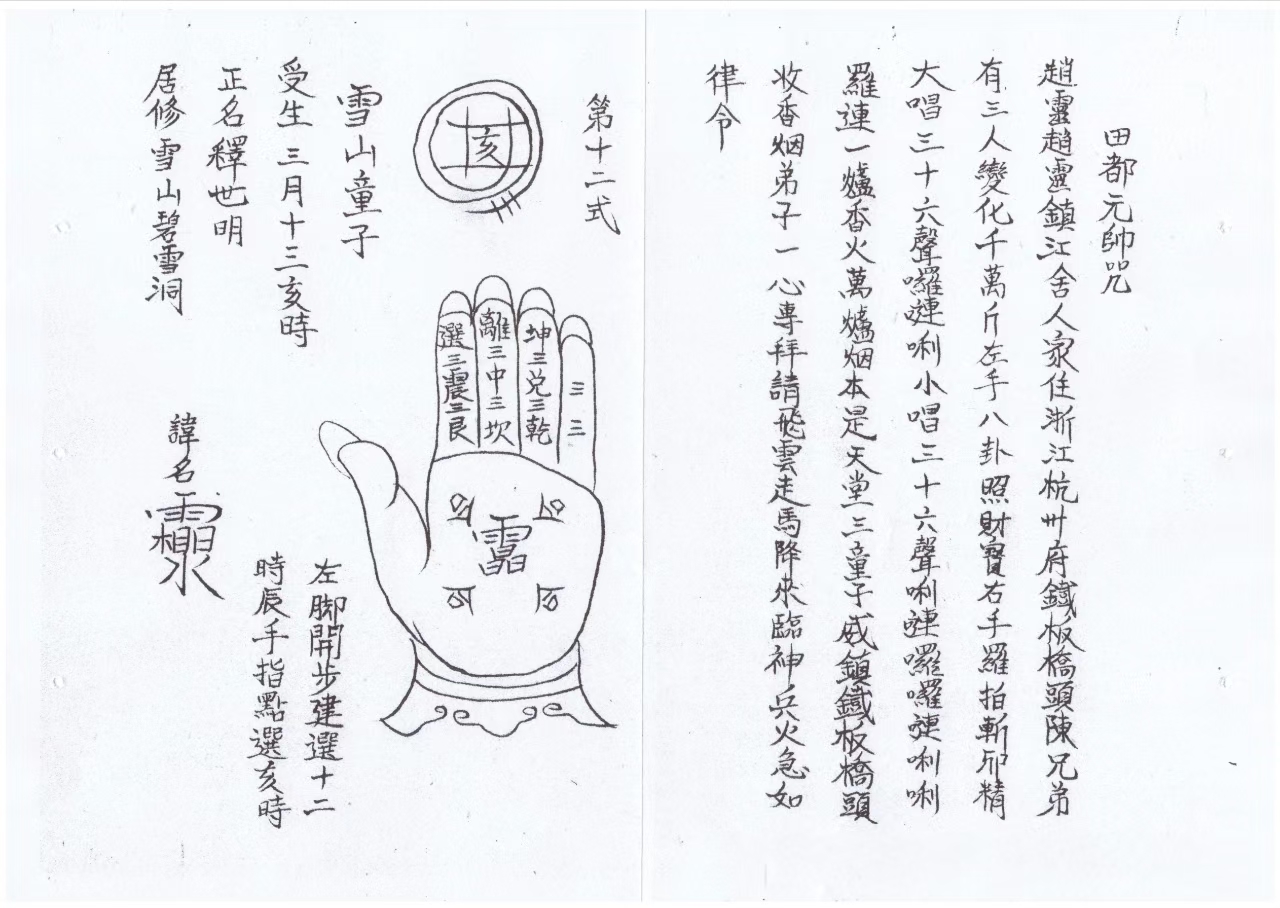 田都元帥咒
趙靈趙靈鎮江舍人家住浙江杭州府鐵板橋頭陳兄弟
有三人變化千萬斤左手八卦照財寶右手羅拍斬邪精
大唱三十六聲囉嗹唎小唱三十六聲唎嗹囉囉嗹唎唎
羅連一爐香火萬爐烟本是天堂三童子威鎮鐵板橋頭
收香烟弟子一心專拜請飛雲走馬降來臨神兵火急如
律令
第十二式
亥
雪山童子
受生三月十三亥時
正名釋世明
居修雪山碧雪洞
坤三兌三乾
離三中三坎
選三震三艮
三三
諱名
左腳開步建選十二
時辰手指點選亥時